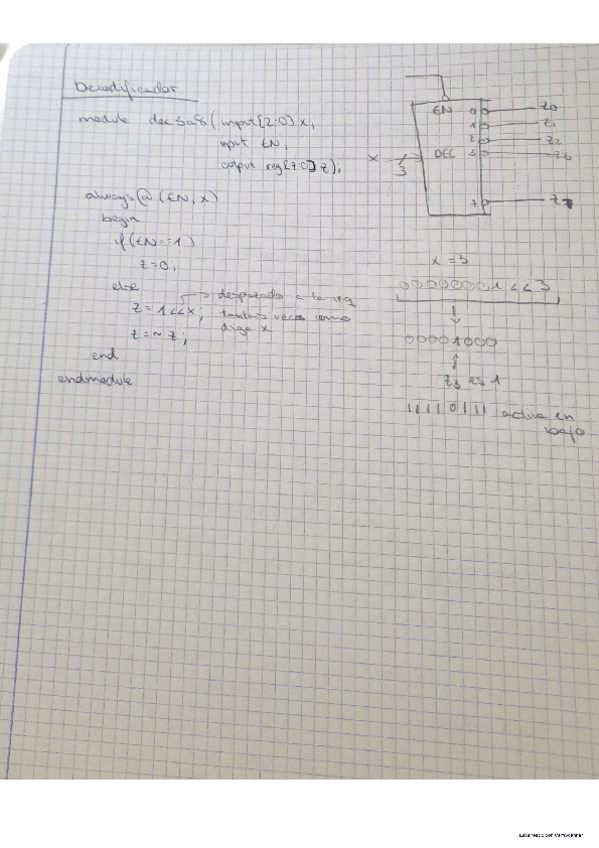 Decodificador
module dec3a8 (input [2:0] x,
input EN,
output reg [7:0] z);
always @ (EN, x)
begin
if (EN==1)
z=0;
else
z=1<<x;
z=~z;
end
endmodule
desplazado a la izq
tantas veces como
diga x
EN
DEC
0
1
2
3
7
x
3
z0
z1
z2
z7
x=3
00000001<<3
00001000
z3 es 1
11110111 activa en
bajo